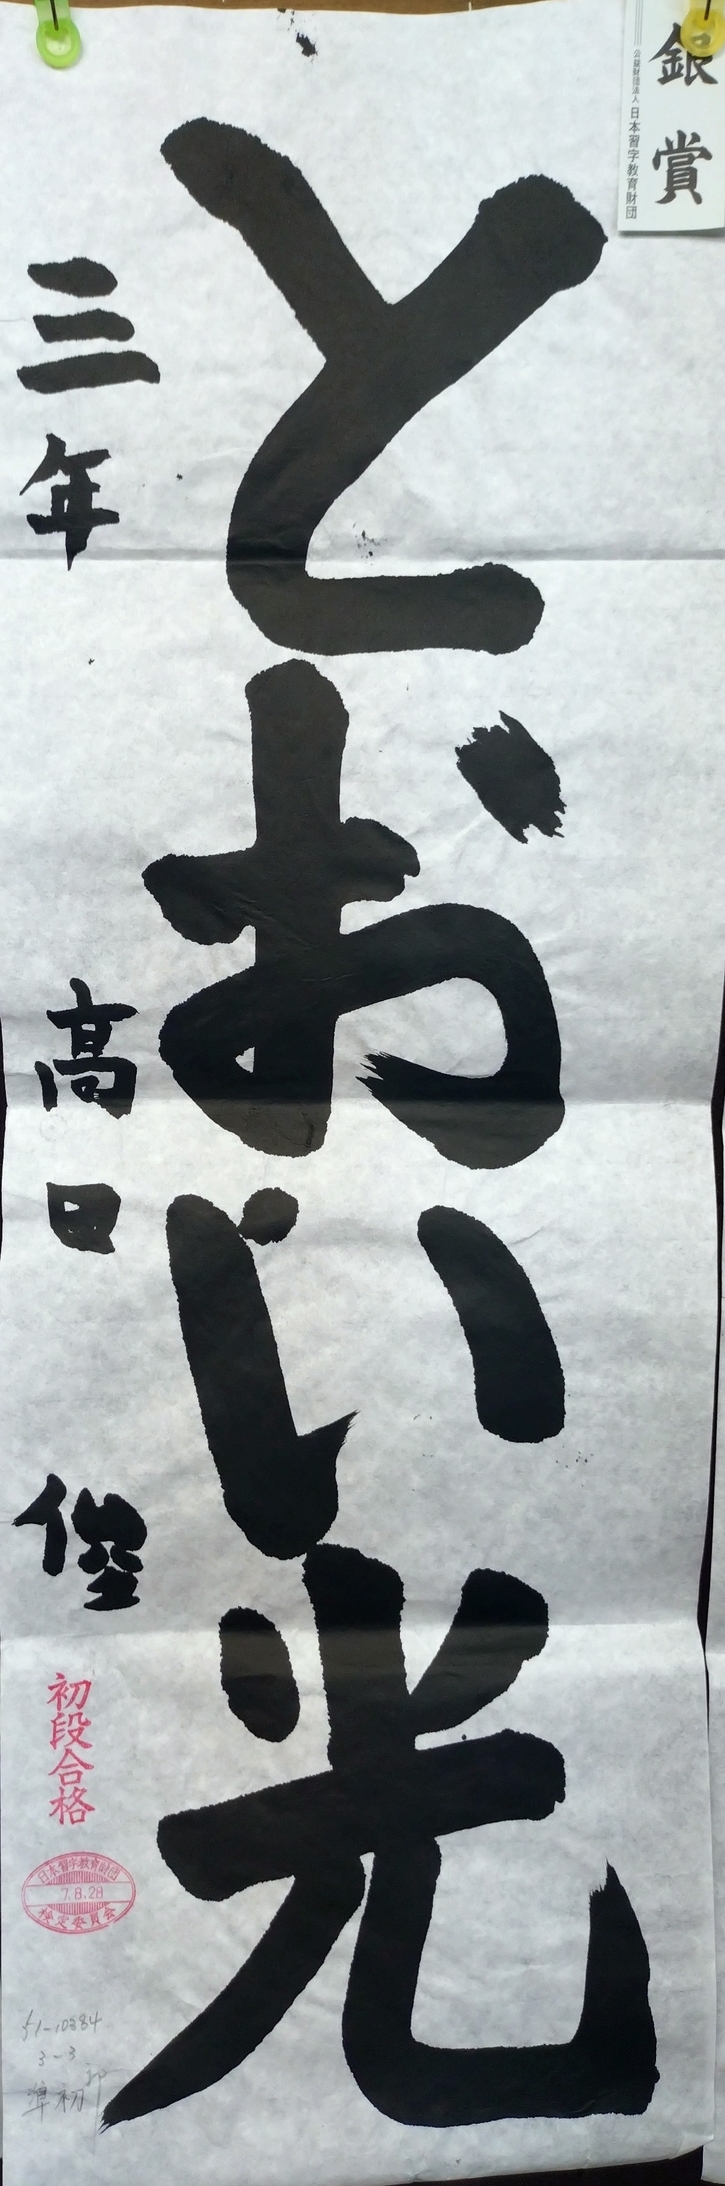 銀賞
公益財団法人 日本習字教育財団
とおい光
三年 高口 俚
初段合格
日本習字教育財団
7.8.28
検定委員会
51-10384
3-3
準初